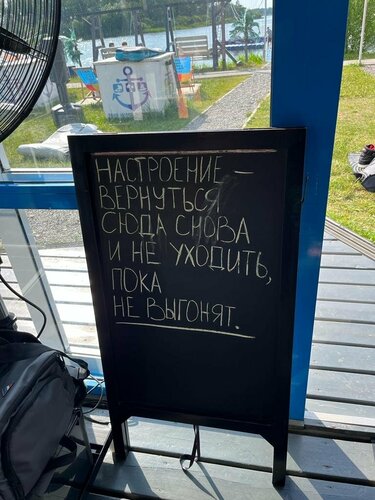 НАСТРОЕНИЕ —
ВЕРНУТЬСЯ
СЮДА СНОВА
И НЕ УХОДИТЬ,
ПОКА
НЕ ВЫГОНЯТ.